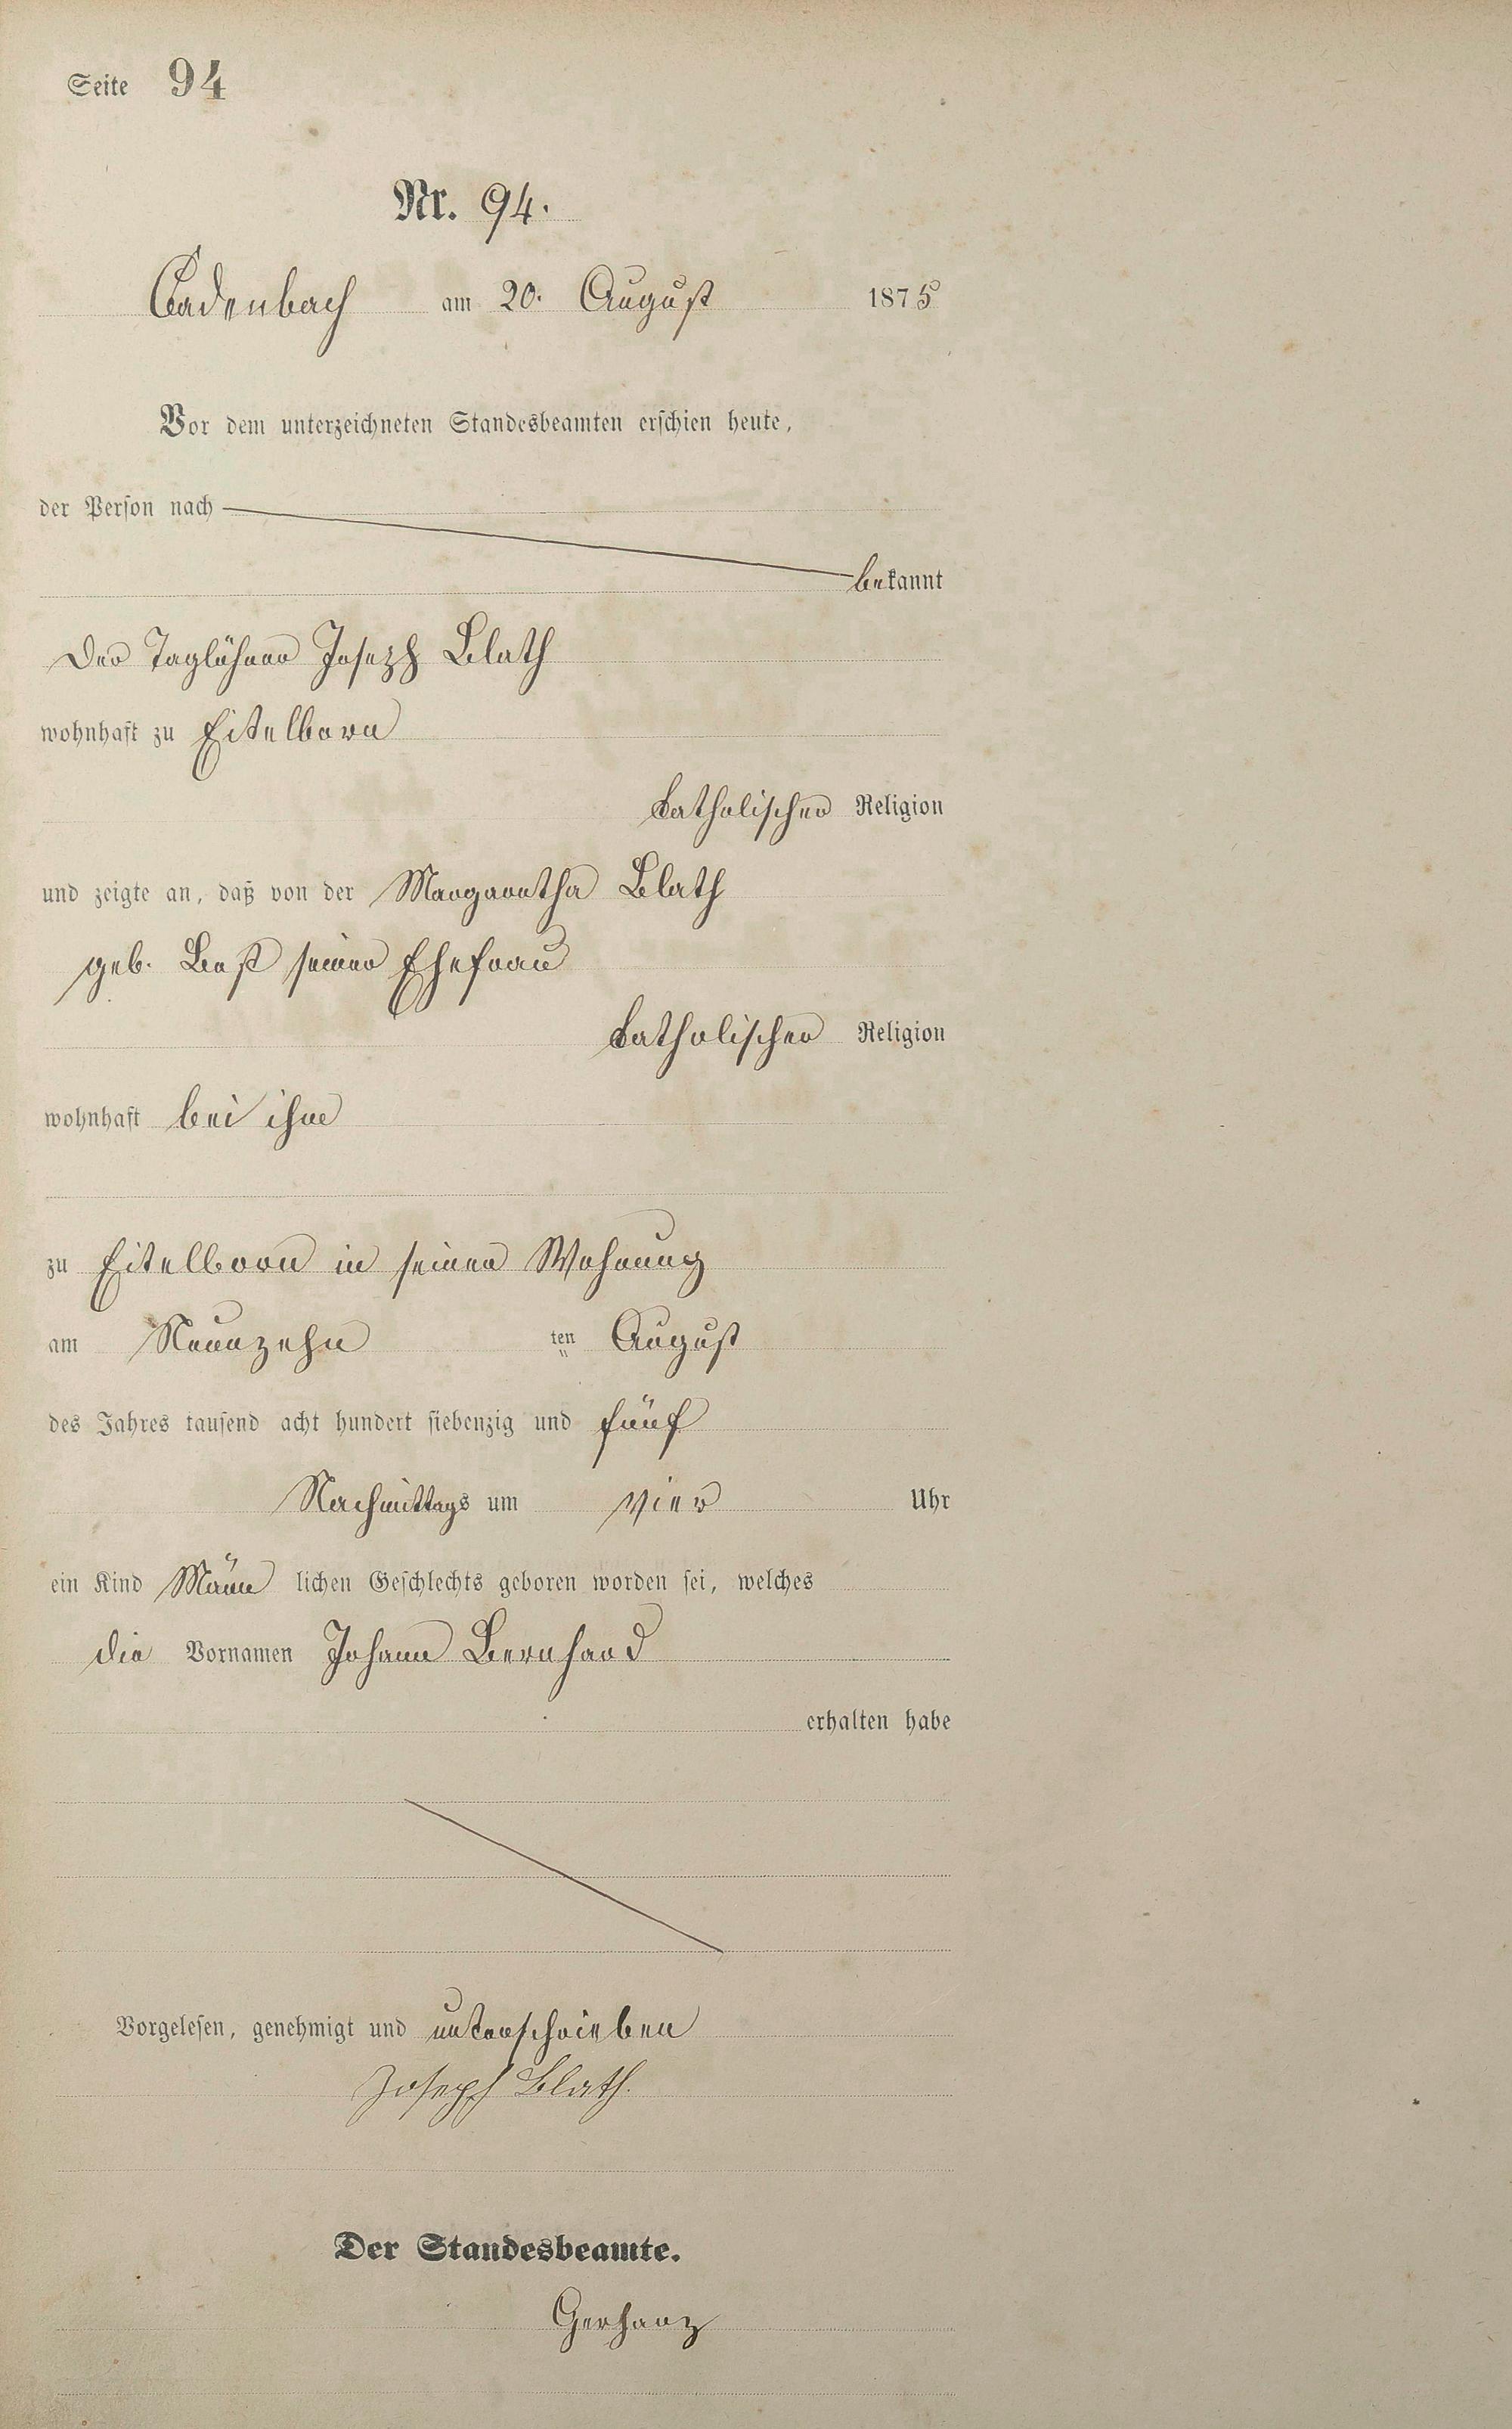 Seite 94
Nr. 94.
Cadenbach am 20. August 1875
Vor dem unterzeichneten Standesbeamten erschien heute,
der Person nach
bekannt
der Taglöhner Joseph Blath
wohnhaft zu Eitelborn
katholischer Religion
und zeigte an, daß von der Margaretha Blath
geb. Best seiner Ehefrau
katholischer Religion
wohnhaft bei ihm
zu Eitelborn in seiner Wohnung
am Neunzehn ten August
des Jahres tausend acht hundert siebenzig und fünf
Nachmittags um vier Uhr
ein Kind Männ lichen Geschlechts geboren worden sei, welches
die Vornamen Johann Bernhard
erhalten habe
Vorgelesen, genehmigt und unterschrieben
Joseph Blath.
Der Standesbeamte.
Gerhanz